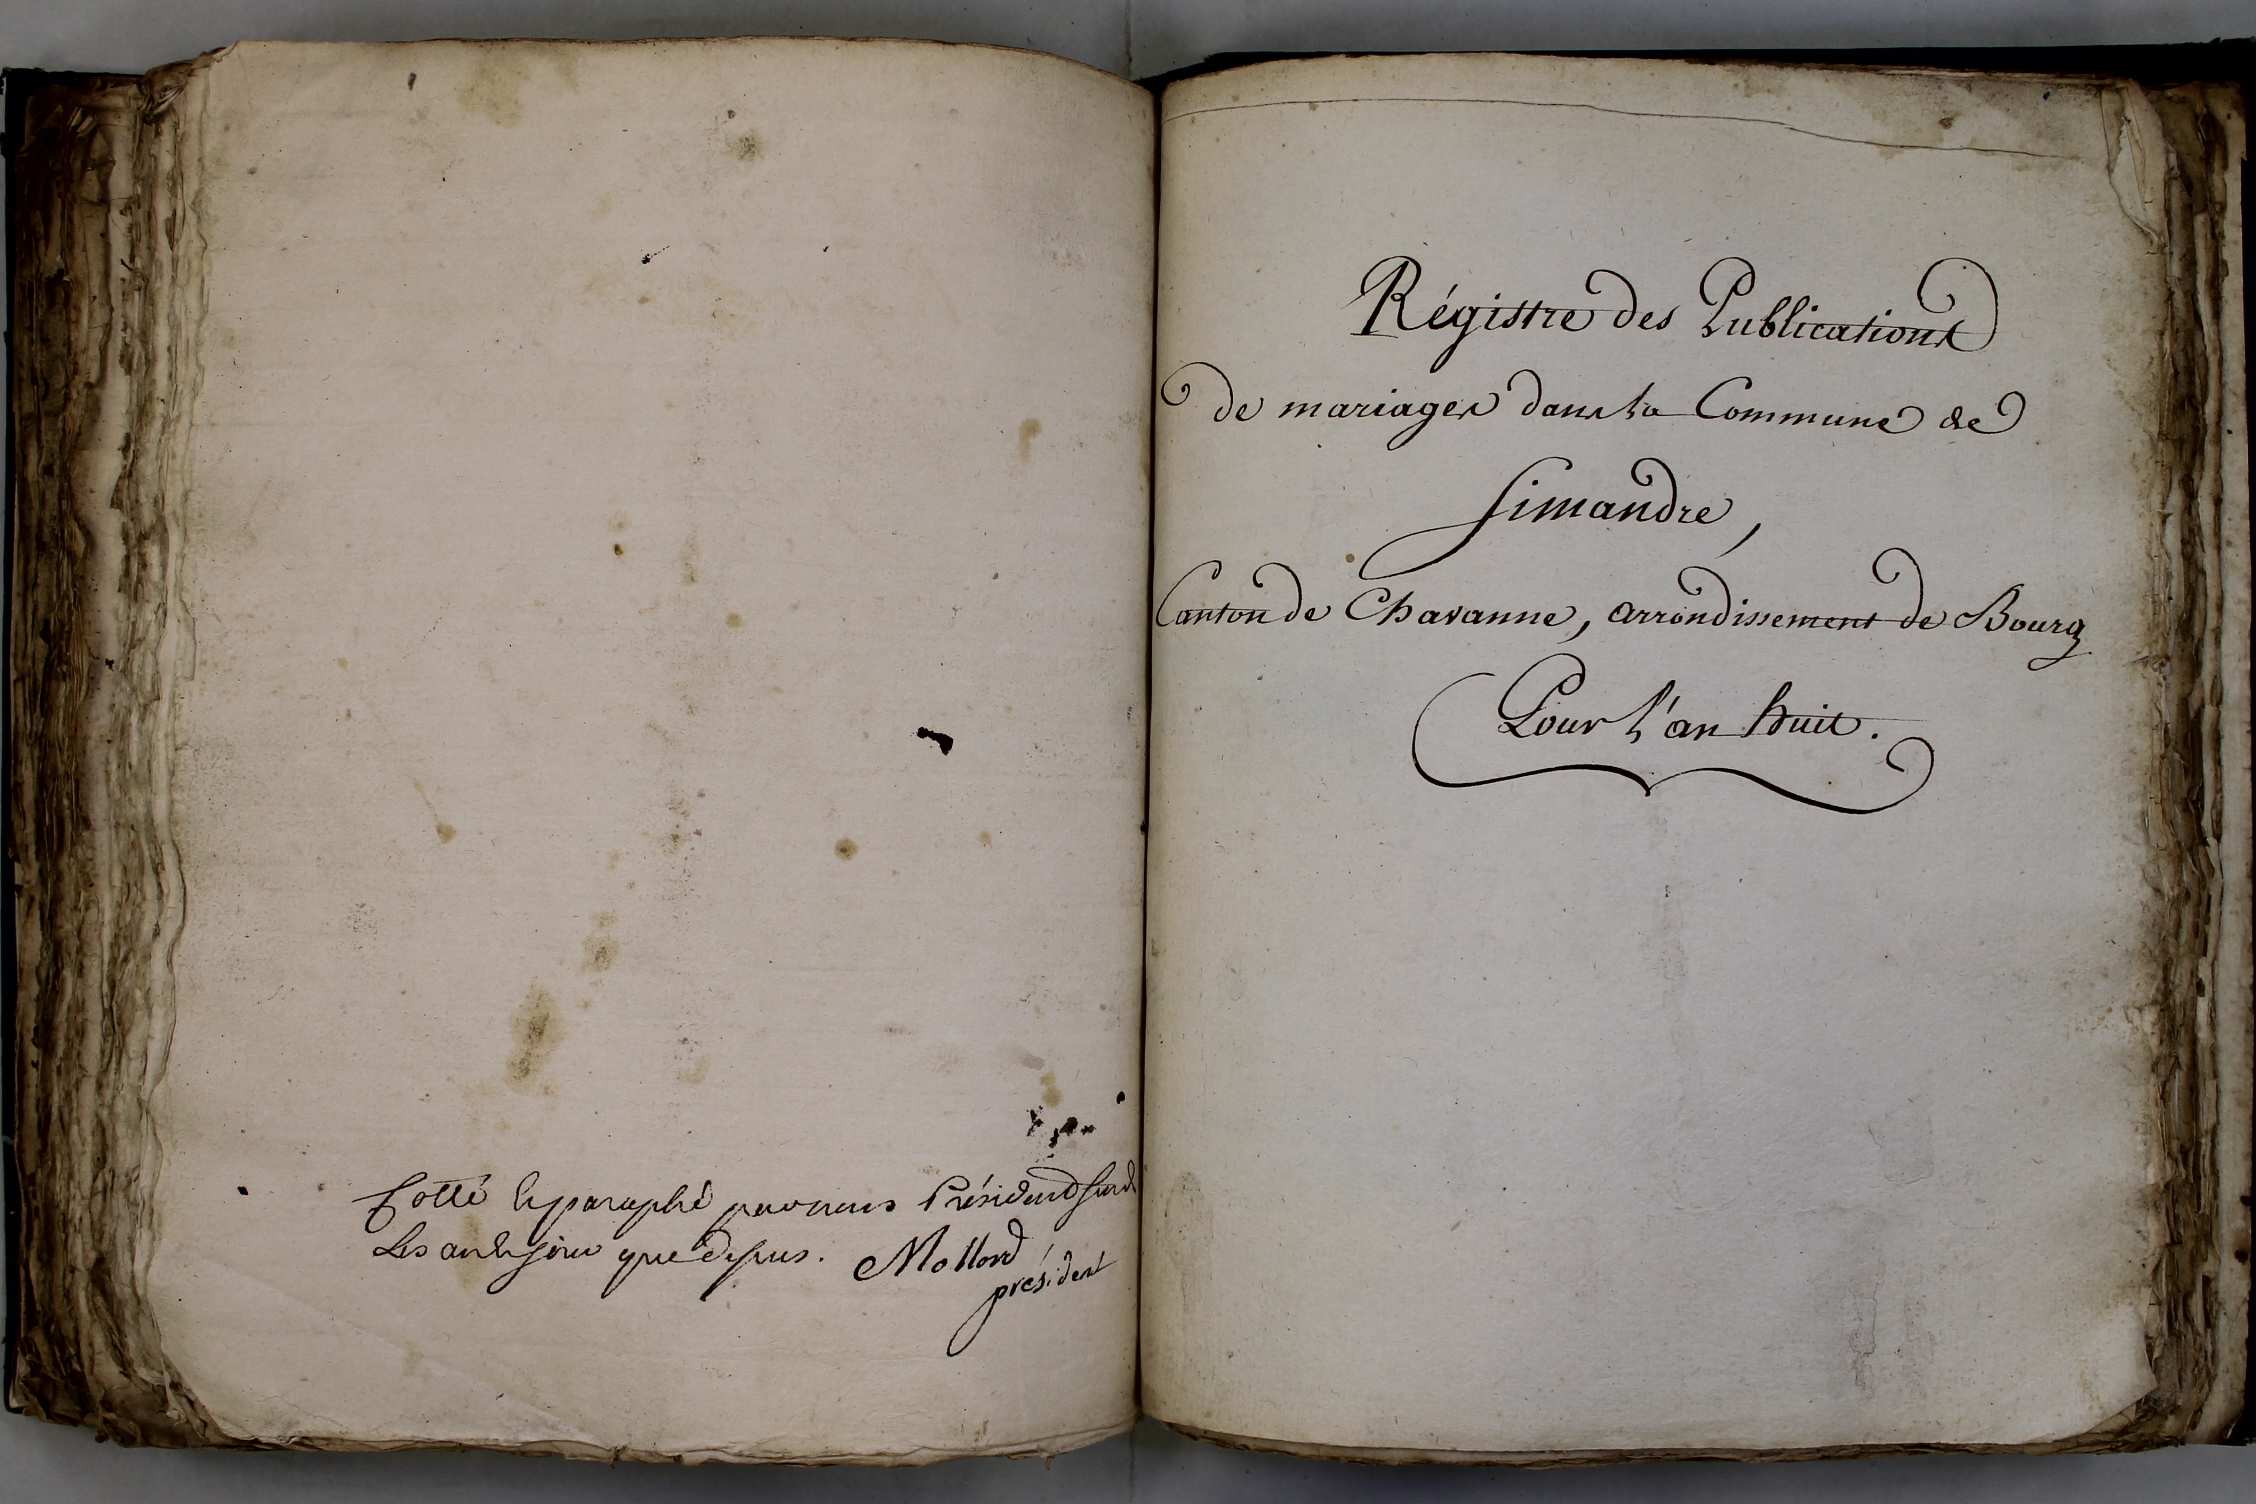 Cotté et paraphé par nous Président sur d
Les an et jour que dessus. Mollard
président
Régistre des Publications
de mariages dans la Commune de
Simandre,
Canton de Chavanne, arrondissement de Bourg
Pour l'an huit.